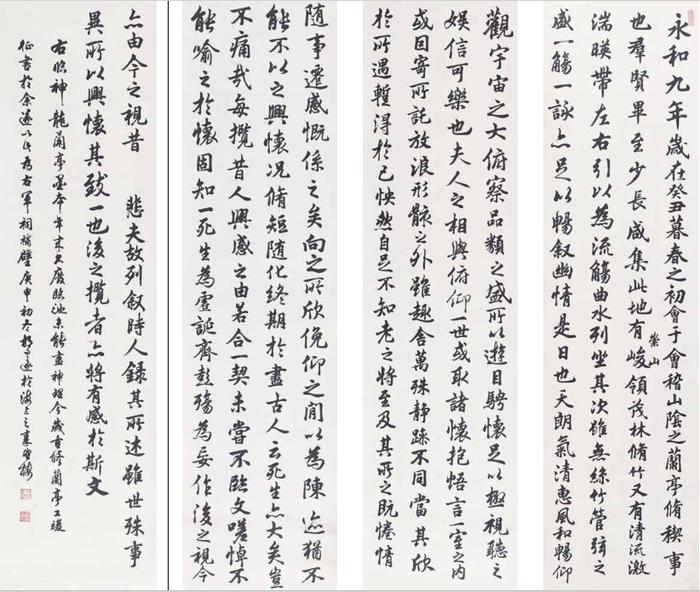 永和九年歲在癸丑暮春之初會于會稽山陰之蘭亭脩稧事
也羣賢畢至少長咸集此地有崇山峻領茂林脩竹又有清流激
湍暎帶左右引以為流觴曲水列坐其次雖無絲竹管弦之
盛一觴一詠亦足以暢叙幽情是日也天朗氣清惠風和暢仰
觀宇宙之大俯察品類之盛所以遊目騁懷足以極視聽之
娛信可樂也夫人之相與俯仰一世或取諸懷抱悟言一室之內
或因寄所託放浪形骸之外雖趣舍萬殊静躁不同當其欣
於所遇蹔得於己怏然自足不知老之將至及其所之既惓情
隨事遷感慨係之矣向之所欣俛仰之閒以為陳迹猶不
能不以之興懷况脩短隨化終期於盡古人云死生亦大矣豈
不痛哉每攬昔人興感之由若合一契未嘗不臨文嗟悼不
能喻之於懷固知一死生為虛誕齊彭殤為妄作後之視今
亦由今之視昔 悲夫故列叙時人録其所述雖世殊事
異所以興懷其致一也後之攬者亦將有感於斯文
右臨神龍蘭亭墨本年來久廢臨池未能盡神理今歲重修蘭亭工竣
征書於余遂以此為右軍祠補壁庚申初冬於海上之樓